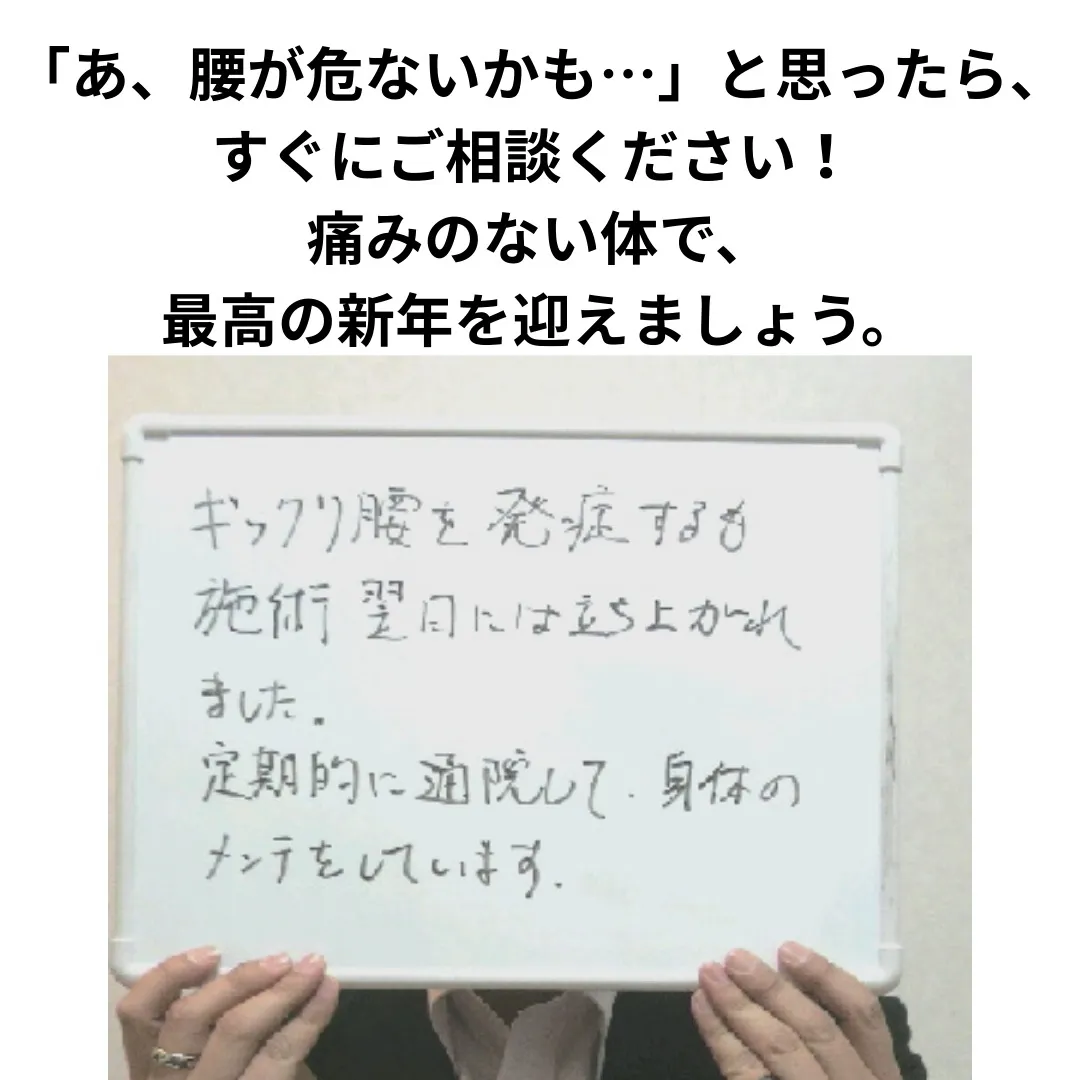 「あ、腰が危ないかも…」と思ったら、
すぐにご相談ください！
痛みのない体で、
最高の新年を迎えましょう。
ギックリ腰を発症するも
施術翌日には立ち上がれ
ました。
定期的に通院して、身体の
メンテをしています。